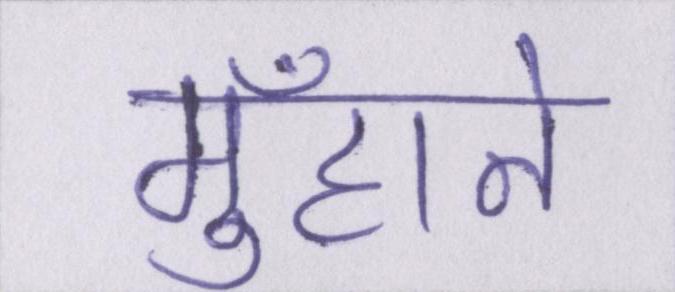 मुँहाने